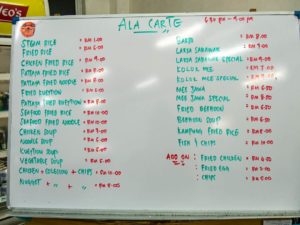 ALA CARTE
6:30 PM - 9:00 PM
STEAM RICE = RM 1.00
FRIED RICE = RM 6.00
CHICKEN FRIED RICE = RM 9.00
PATTAYA FRIED RICE = RM 8.00
PATTAYA FRIED NOODLE = RM 8.00
FRIED KUEYTIOW = RM 6.00
PATTAYA FRIED KUEYTIOW = RM 8.00
SEAFOOD FRIED RICE = RM 10.00
SEAFOOD FRIED NOODLE = RM 10.00
CHICKEN SOUP = RM 7.00
NOODLE SOUP = RM 6.00
KUEYTIOW SOUP = RM 6.00
VEGETABLE SOUP = RM 5.00
CHICKEN + COLESLOW + CHIPS = RM 10.00
NUGGET + " + " = RM 8.00
= RM 8.00
LAKSA SARAWAK = RM 7.00
LAKSA SARAWAK SPECIAL = RM 9.00
KOLOK MEE = RM 7.00
KOLOK MEE SPECIAL
MEE JAWA = RM 6.50
MEE JAWA SPECIAL = RM 8.50
FRIED BEEHOON = RM 6.50
BEEHOON SOUP = RM 6.50
KAMPUNG FRIED RICE = RM 8.00
FISH & CHIPS = RM 10.00
ADD ON : FRIED CHICKEN = RM 6.50
: FRIED EGG = RM 2.00
: CHIPS = RM 5.00